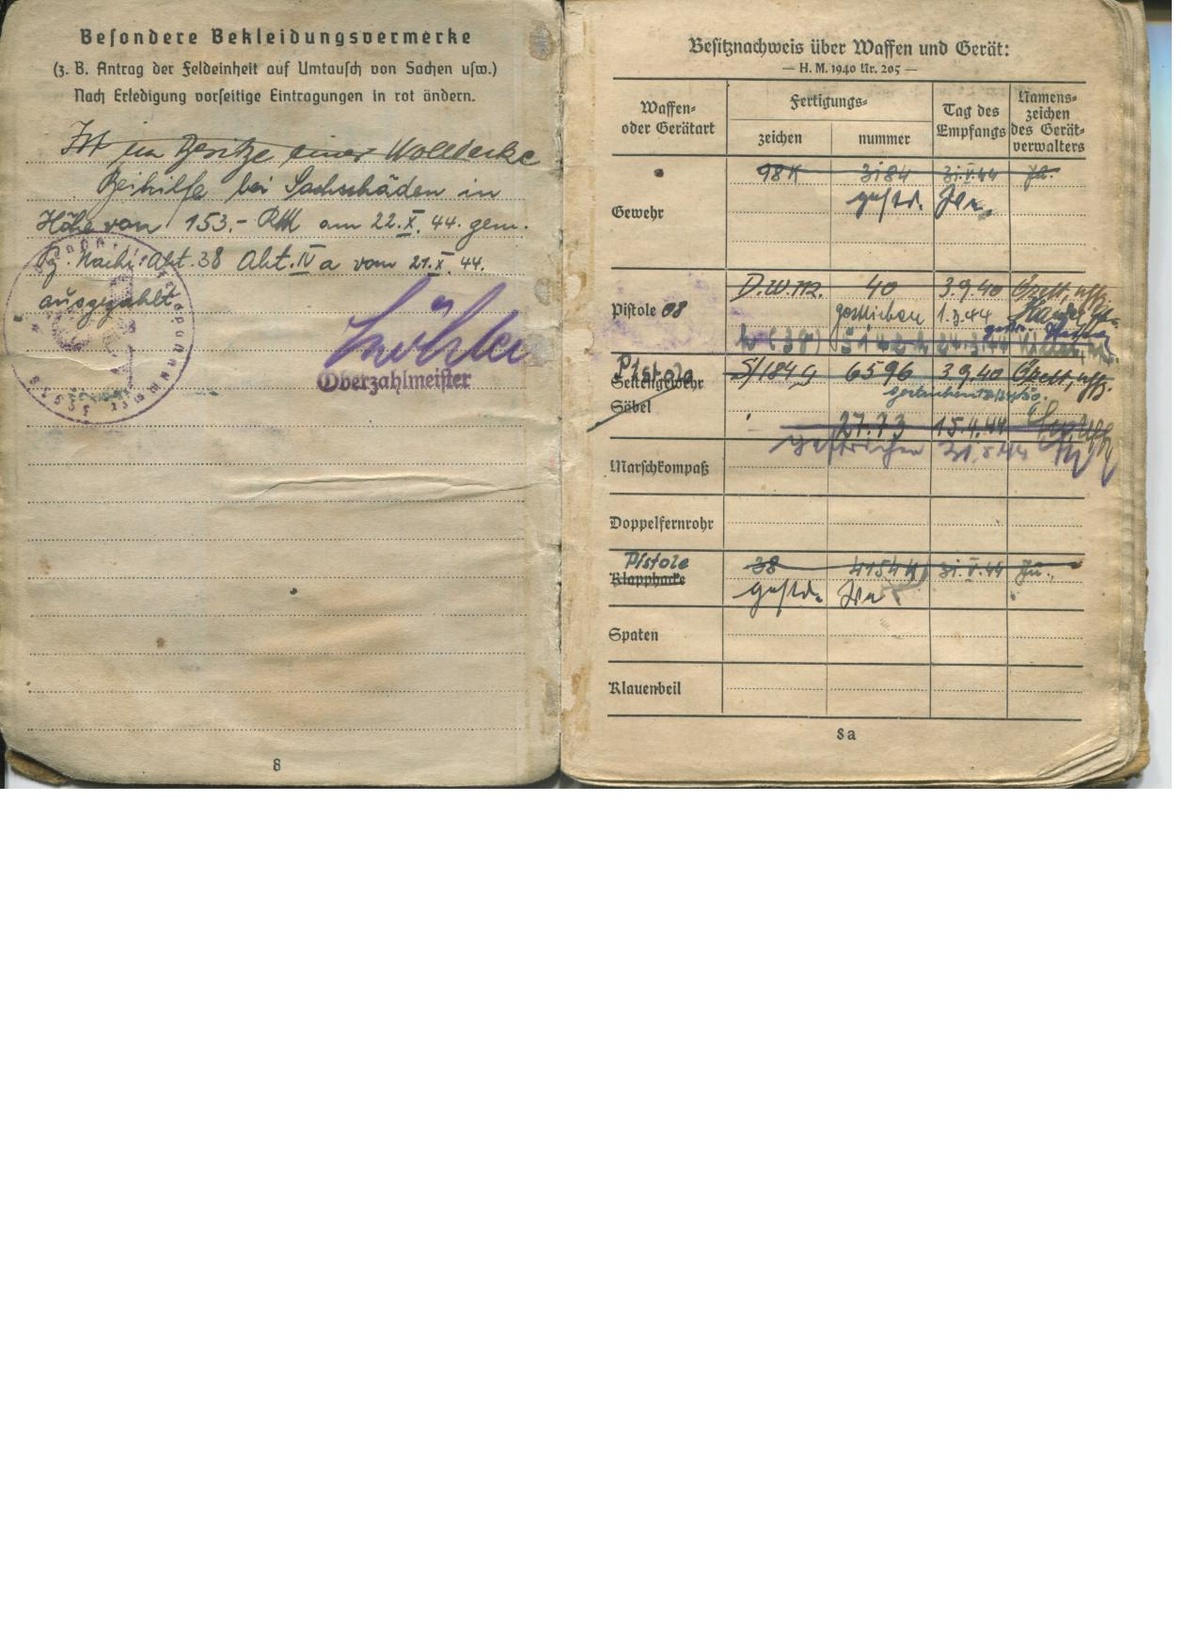 Besondere Bekleidungsvermerke
(z. B. Antrag der Feldeinheit auf Umtausch von Sachen usw.)
Nach Erledigung vorseitige Eintragungen in rot ändern.
Ist im Besitze einer Wolldecke
Beihilfe bei Sachschäden in
Höhe von 153.- RM am 22.X.44. gem.
Pz. Nachr. Abt. 38 Abt. IVa vom 21.X.44.
ausgezahlt.
Oberzahlmeister
8
Besitznachweis über Waffen und Gerät:
— H. M. 1940 Nr. 205 —
Waffen- oder Gerätart
Fertigungs-
zeichen
nummer
Tag des Empfangs
Namens-zeichen des Gerät-verwalters
98K 3184 31.V.44
Gewehr gestr.
D.W.M. 40 3.9.40
Pistole 08 gestrichen 1.3.44
Pistole
Seitengewehr S/184 G 6596 3.9.40
Säbel
27.73 15.4.44
gestrichen
Marschkompaß
Doppelfernrohr
Pistole 38 4154 31.V.44
Klapphacke
gestr.
Spaten
Klauenbeil
8a